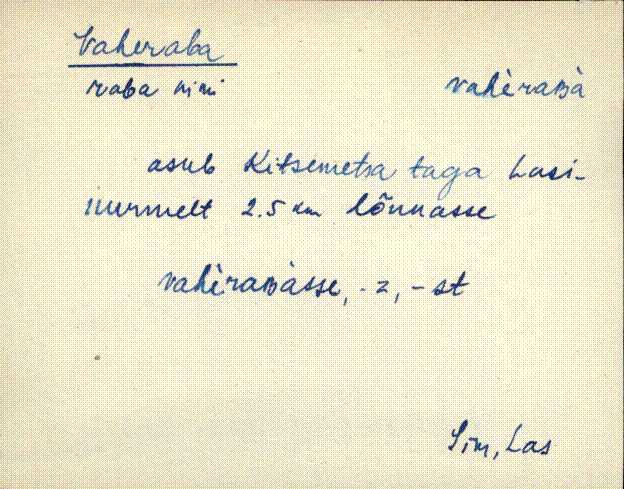 Vaheraba
raba nimi vahèraʙà
asub Kitsemetsa taga Lasi-
nurmelt 2.5 km lõunasse
vahèraʙàsse, -z, -st
Sim, Las